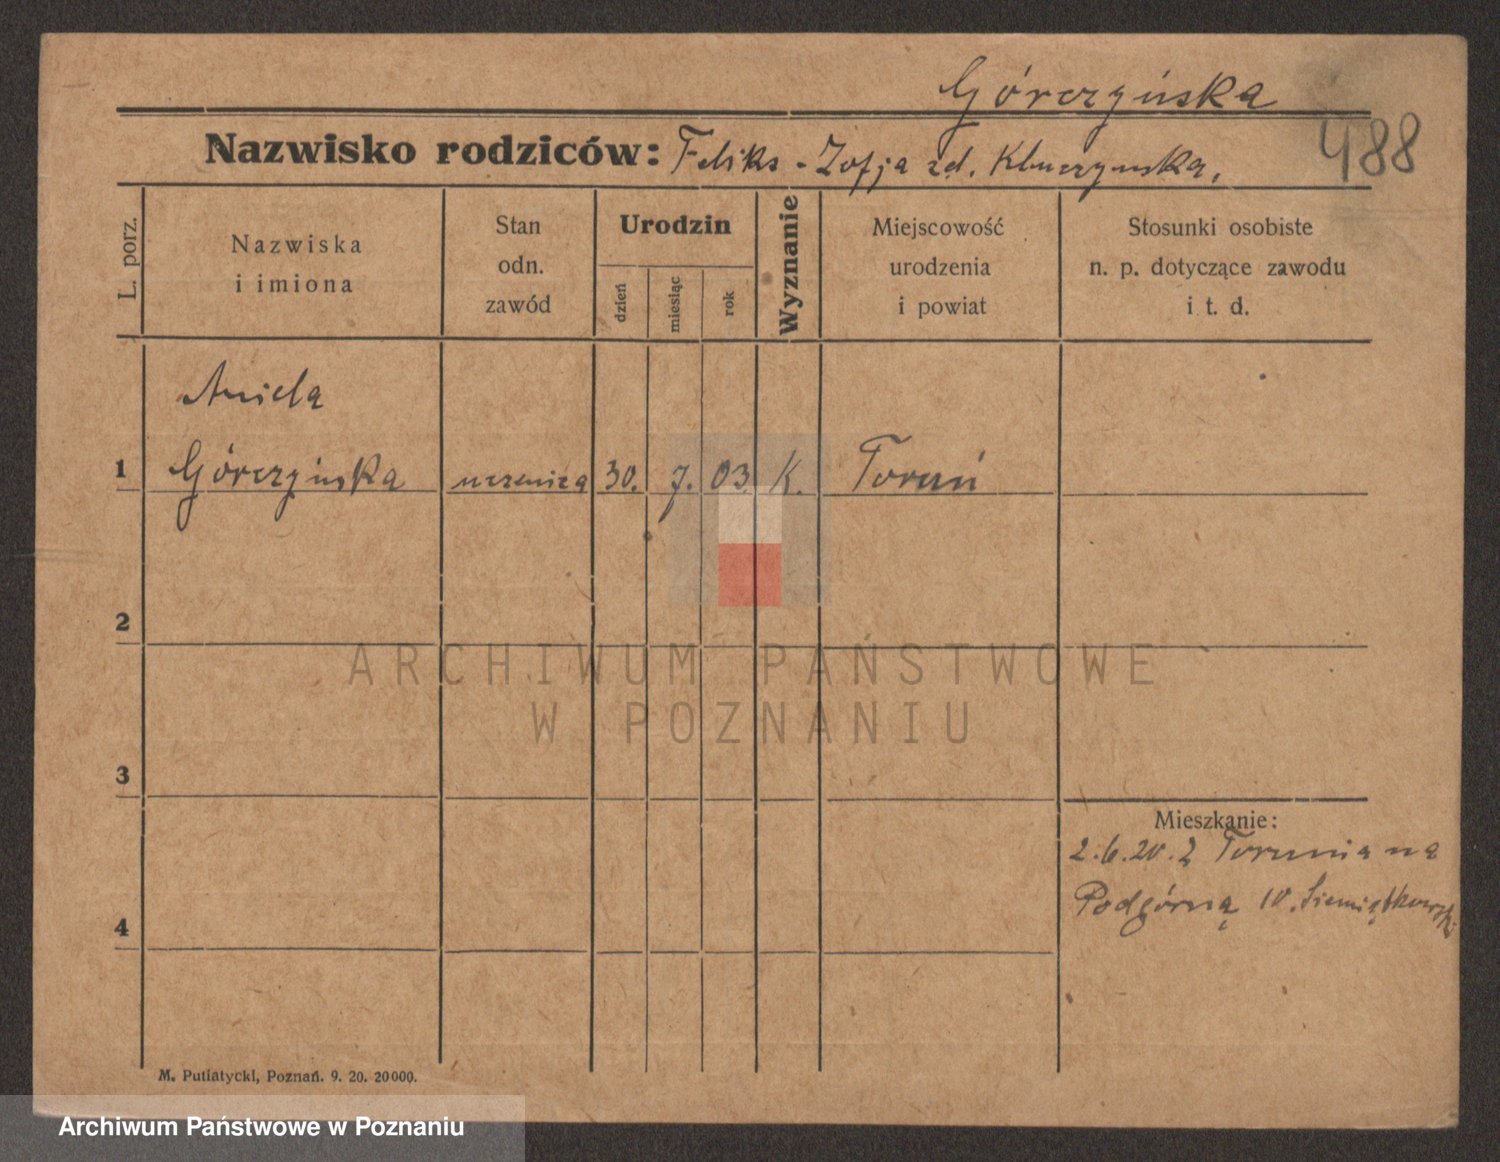 Górczyńska
488
Nazwisko rodziców: Feliks - Zofja zd. Kluczynska,
L. porz.
Nazwiska
i imiona
Stan
odn.
zawód
Urodzin
dzień
miesiąc
rok
Wyznanie
Miejscowość
urodzenia
i powiat
Stosunki osobiste
n. p. dotyczące zawodu
i t. d.
Aniela
1 Górczyńska uczenica 30. 7. 03. K. Toruń
2
ARCHIWUM PAŃSTWOWE
W POZNANIU
3
Mieszkanie:
2.6.20. z Torunia na
Podgórną 10. Siemiątkowski
4
M. Putiatycki, Poznań. 9. 20. 20000.
Archiwum Państwowe w Poznaniu